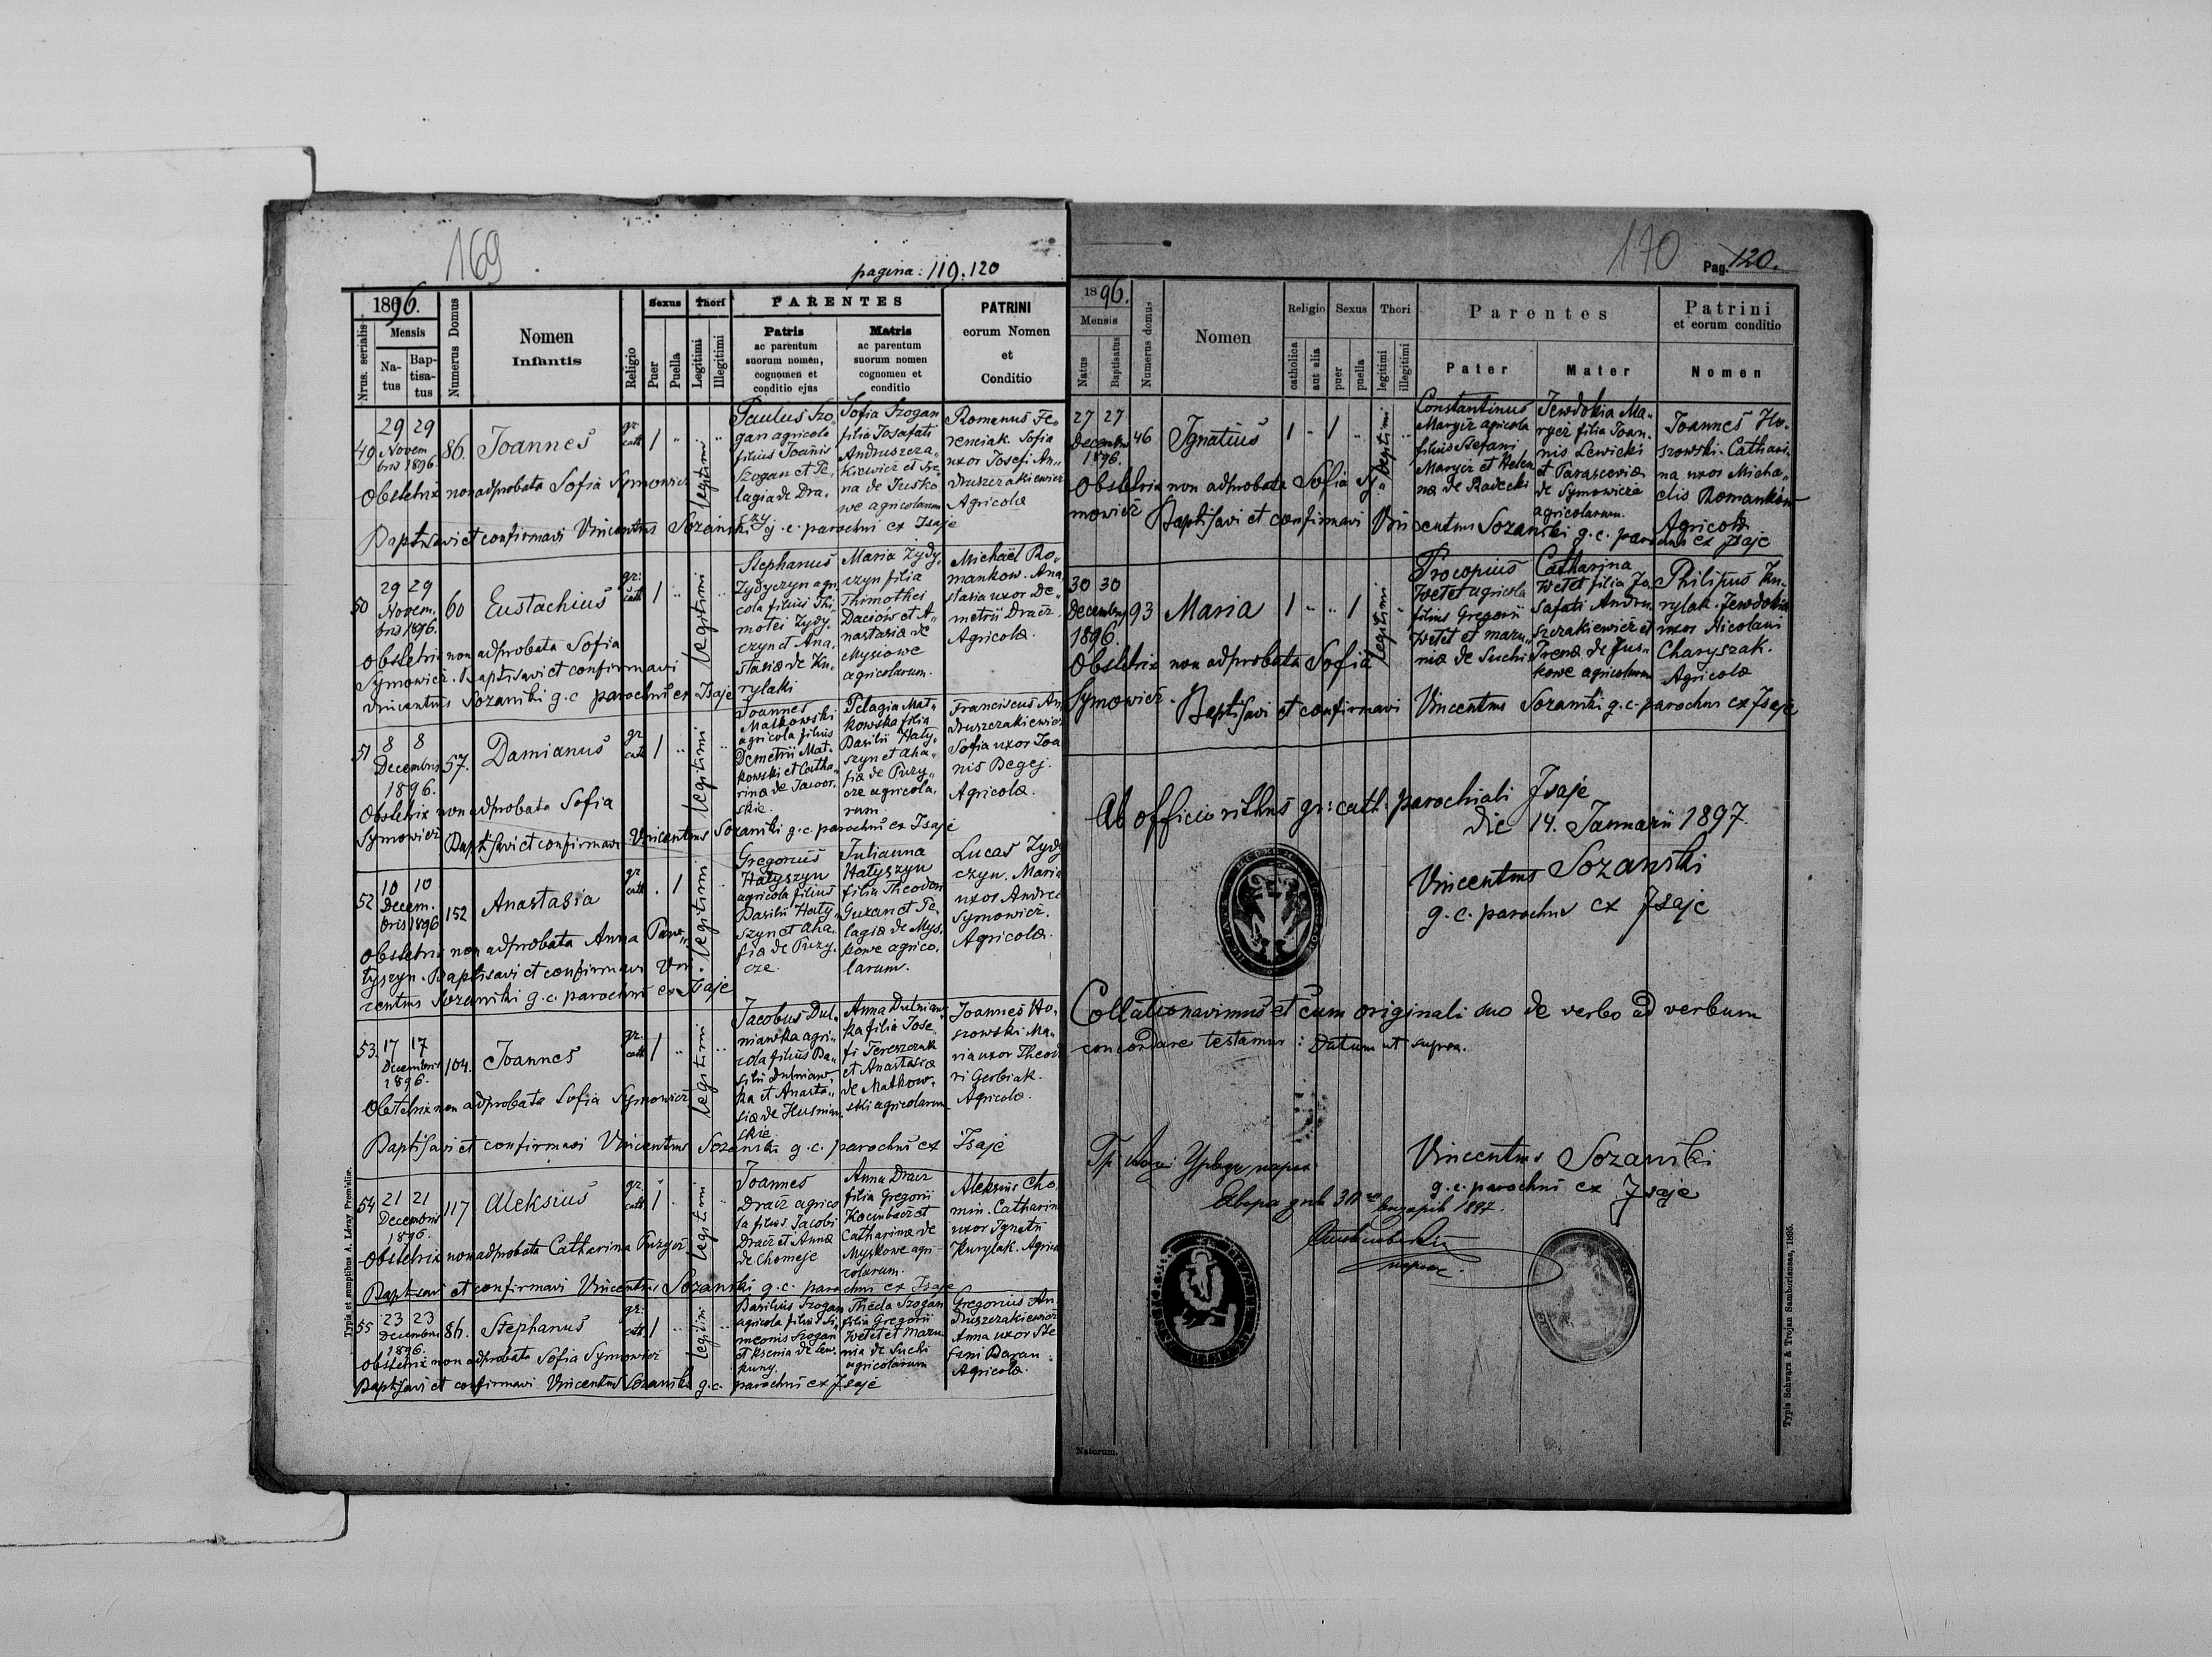 169
pagina: 119. 120
1896.
Nrus. serialis
Mensis
Natus
Baptisatus
Numerus Domus
Nomen
Infantis
Religio
Sexus
Puer
Puella
Thori
Legitimi
Illegitimi
PARENTES
Patris
ac parentum
suorum nomen,
cognomen et
conditio ejus
Matris
ac parentum
suorum nomen
cognomen et
conditio
PATRINI
eorum Nomen
et
Conditio
49
29 29
Novem
bris 1896.
86.
Joannes
gr.
cath
1
"
legitimi
"
Paulus Szo„
gan agricola
filius Joannis
Szogan et Pe„
lagia de Dra„
czy
Sofia Szogan
filia Josafati
Andruszcza„
kiewicz et Ire„
na de Jusko
we agricolarum
Romanus Fe„
renciak. Sofia
uxor Josefi An„
druszczakiewicz
Agricolæ
Obstetrix non adprobata Sofia Symowicz
Baptisavi et confirmavi Vincentius Sozański g. c. parochus ex Isaje
50
29 29
Novem.
bris 1896.
60
Eustachius
gr:
cath
1
"
legitimi
"
Stephanus
Zydyczyn agri
cola filius Thi„
motei Zydy„
czyn et Ana„
stasiæ de Ku„
rylaki
Maria Zydy„
czyn filia
Thimothei
Daciów et A„
nastasiæ de
Mysiowe
agricolarum.
Michaël Ro„
mankow. Ana
stasia uxor De„
metrii Dracz.
Agricolæ.
Obstetrix non adprobata Sofia
Symowicz. Baptisavi et confirmavi
Vincentius Sozanski g.c parochus ex Isaje
51
8 8
Decembris
1896.
57.
Damianus
gr
cath
1
"
legitimi
"
Joannes
Matkowski
agricola filius
Demetrii Mat„
kowski et Catha„
rinæ de Jawor„
skie.
Pelagia Mat„
kowska filia
Basilii Haty„
szyn et Aha„
fiæ de Puzy„
cze agricola„
rum.
Franciscus An
druszczakiewicz
Sofia uxor Joa
nis Begej.
Agricolæ.
Obstetrix non adprobata Sofia
Symowicz Baptisavi et confirmavi Vincentius Sozanski g.c. parochus ex Isaje
52
10 10
Decem.
bris 1896
152
Anastasia
gr
cath
.
1
legitimi
.
Gregorius
Hatyszyn
agricola filius
Basilii Haty„
szyn et Aha„
fiæ de Puzy.
cze.
Julianna
Hatyszyn
filia Theodori
Guzan et Pe„
lagiæ de Mys„
kowe agrico„
larum.
Lucas Zydy
czyn. Maria
uxor Andreæ
Symowicz.
Agricolæ.
Obstetrix non adprobata Anna Paw„
tyszyn. Baptisavi et confirmavi Vin
centius Sozanski g.c. parochus ex Isaje
53.
17 17
Decembris
1896.
104.
Joannes
gr.
cath
1
"
legitimi
"
Jacobus Dul„
niawka agri„
cola filius Ba„
silii Dulniaw„
ka et Anasta„
siæ de Husnian
skie
Anna Dulniaw
ka filia Jose„
fi Tereszczuk
et Anastasiæ
de Matkow„
ski agricolarum
Joannes Ho„
szowski Ma„
ria uxor Theodo
ri Gerbiak.
Agricolæ.
Obstetrix non adprobata Sofia Symowicz
Baptisavi et confirmavi Vincentius Sozanski g.c. parochus ex Isaje
54
21 21
Decembris
1896.
117
Aleksius
gr
cath
1
.
legitimi
"
Joannes
Dracz agrico
la filius Jacobi
Dracz et Annæ
de Chomeje
Anna Dracz
filia Gregorii
Kocinbacz et
Catharinæ de
Myskowe agri„
colarum.
Aleksius Cho
min. Catharin
uxor Ignatii
Kurylak. Agricol
Obstetrix non adprobata Catharina Puzycz
Baptisavi et confirmavi Vincentius Sozanski g.c. parochus ex Isaje
55
23 23
Decembris
1896.
86.
Stephanus
gr.
cath
1
"
legitimi
"
Basilius Szogan
agricola filius Si„
meonis Szogan
et Ksenia de Lew„
kuny.
Thecla Szogan
filia Gregorii
Wetet et Maru
nia de Suchi
agricolarum
Gregorius An„
druszczakiewicz
Anna uxor Ste
fani Baran.
Agricolæ.
Obstetrix non adprobata Sofia Symowicz
Baptisavi et confirmavi Vincentius Sozanski g.c. parochus ex Isaje
Typis et sumptibus A. Lèray Premisliæ.
170
Pag. 120.
1896.
Mensis
Natus
Baptisatus
Numerus domus
Nomen
Religio
catholica
aut alia
Sexus
puer
puella
Thori
legitimi
illegitimi
Parentes
Pater
Mater
Patrini
et eorum conditio
Nomen
27 27
Decembris
1896.
46
Ignatius
1
"
1
"
legitimi
"
Constantinus
Marycz agricola
filius Stefani
Marycz et Hele„
næ de Radecki
Jewdokia Ma„
rycz filia Joan„
nis Lewicki
et Parasceviæ
de Symowicze
agricolarum.
Joannes Ho„
szowski. Cathari„
na uxor Micha„
elis Romanków
Agricolæ
Obstetrix non adprobata Sofia Sy„
mowicz Baptisavi et confirmavi Vincentius Sozanski g.c. parochus ex Isaje
30 30
Decembris
1896.
93
Maria
1
"
"
1
legitimi
"
Procopius
Wetet agricola
filius Gregorii
Wetet et Maru„
niæ de Suchi
Catharina
Wetet filia Jo„
safati Andru„
szczakiewicz et
Irenæ de Jus„
kowe agricolarum
Philipus Ku„
rylak. Jewdokia
uxor Nicolaui
Charyszak.
Agricolæ
Obstetrix non adprobata Sofia
Symowicz. Baptisavi et confirmavi Vincentius Sozanski g.c. parochus ex Isaje
Ab officio rithus gr: cath. parochiali Isaje
die 14. Januarii 1897.
Vincentius Sozanski
g.c. parochus ex Isaje
Collationavimus et cum originali suo de verbo ad verbum
concordare testamur: Datum ut supra.
Vincentius Sozanski
g.c. parochus ex Isaje
1897.
Natorum.
Typis Schwarz & Trojan Samborianae, 1895.